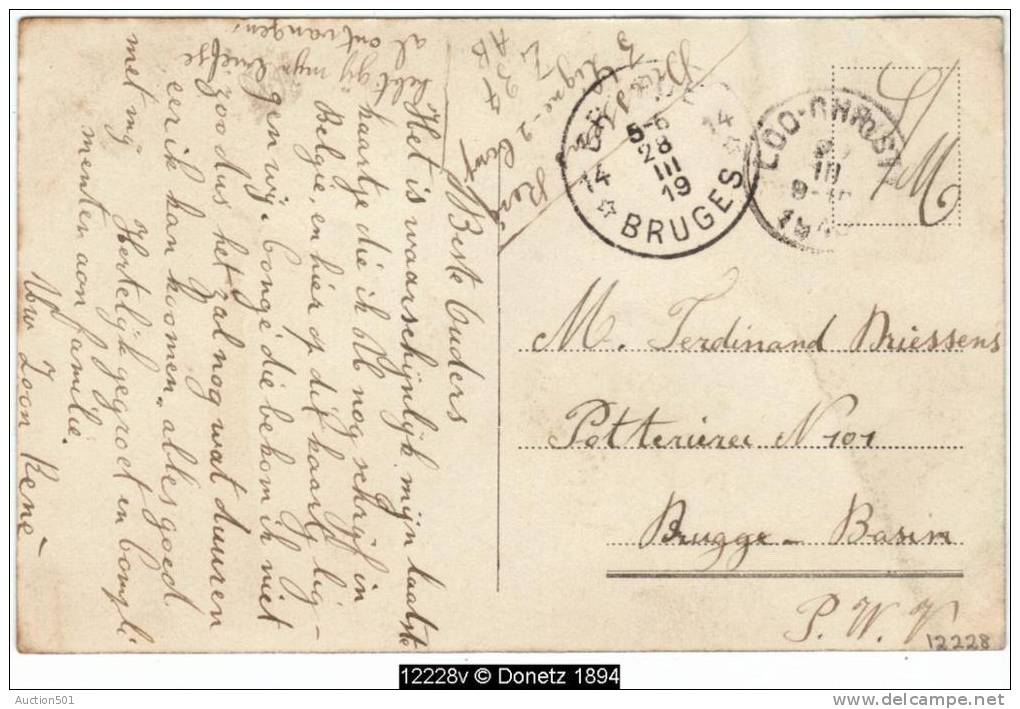 hebt gij mijn briefke
al ontvangen,
Beste Ouders
Het is waarschijnlijk mijn laatste
kaartje die ik Ul nog schrijf in
België, en hier op dit kaartje lig-
gen wij. Congé die bekom ik niet
zoo dus het zal nog wat duuren
eer ik kan koomen. alles goed
met mij
Hertelijk gegroet en Compli
menten aan familie.
Uw Zoon René
René
Ligne - 2
14 BRUGES 14
5-6
28
III
19
LOO-CHRISTI
III
S.M.
M. Ferdinand Driessens
Potterierei N 101
Brugge - Basin
P. W. V
12228
12228v © Donetz 1894
Auction501
www.delcampe.net